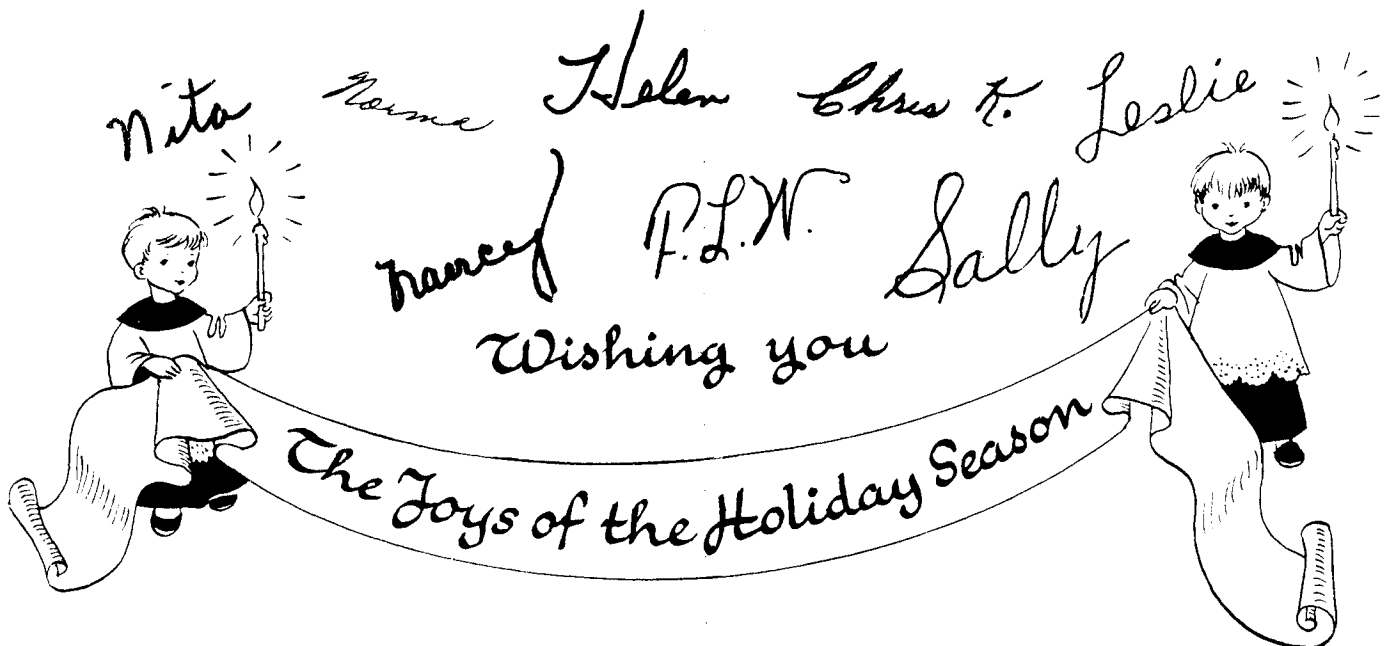 Nita Norma Helen Chris K. Leslie
Nancy P.L.W. Sally
Wishing you
The Joys of the Holiday Season